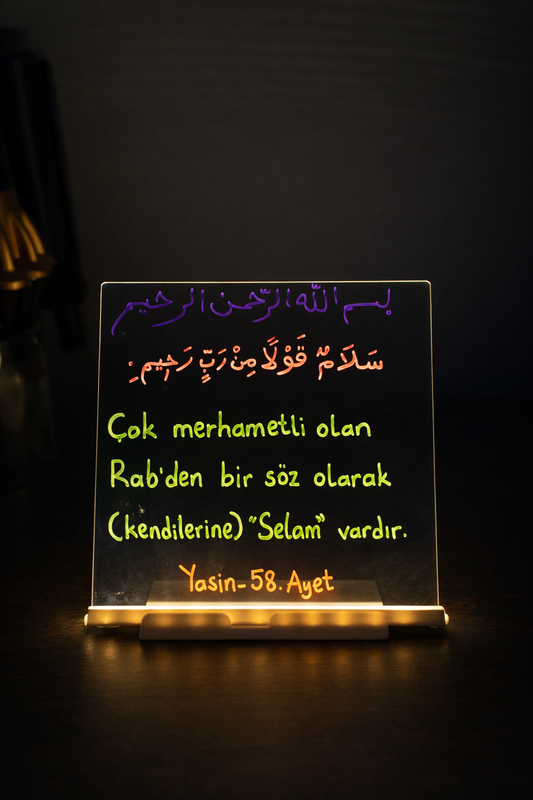 بسم الله الرحمن الرحيم
سَلَامٌ قَوْلًا مِنْ رَبٍّ رَحِيمٍ
Çok merhametli olan
Rab'den bir söz olarak
(kendilerine) "Selam" vardır.
Yasin-58. Ayet